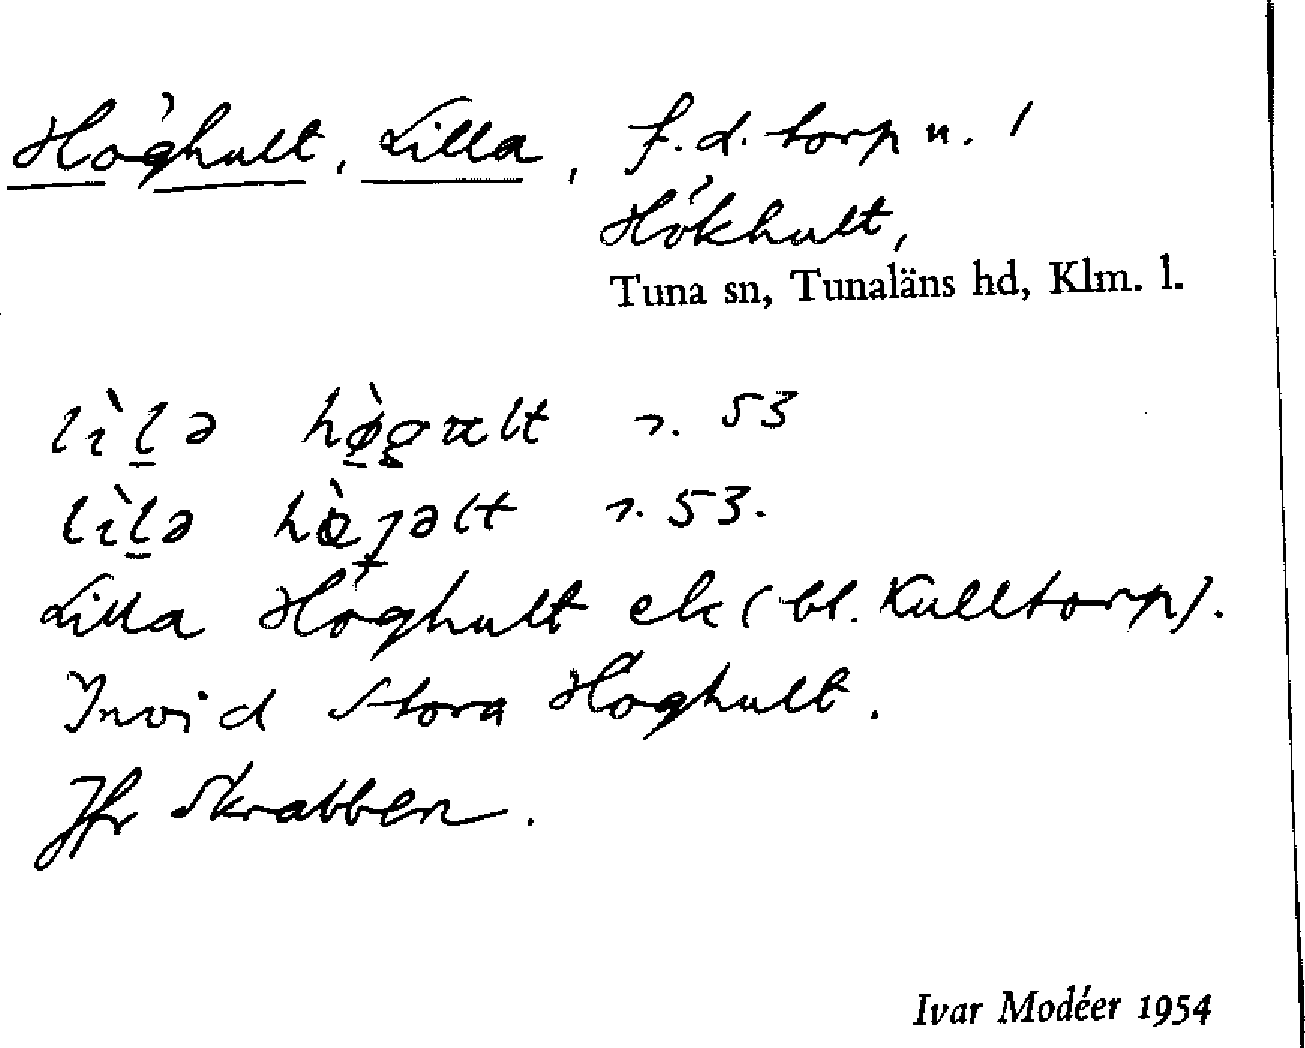 Höghult, Lilla, f.d. torp u. /
Hökhult,
Tuna sn, Tunaläns hd, Klm. l.
53
53.
Lilla Höghult ek (bl. Kulltorp).
Invid Stora Höghult.
Jfr Skrabben.
Ivar Modéer 1954